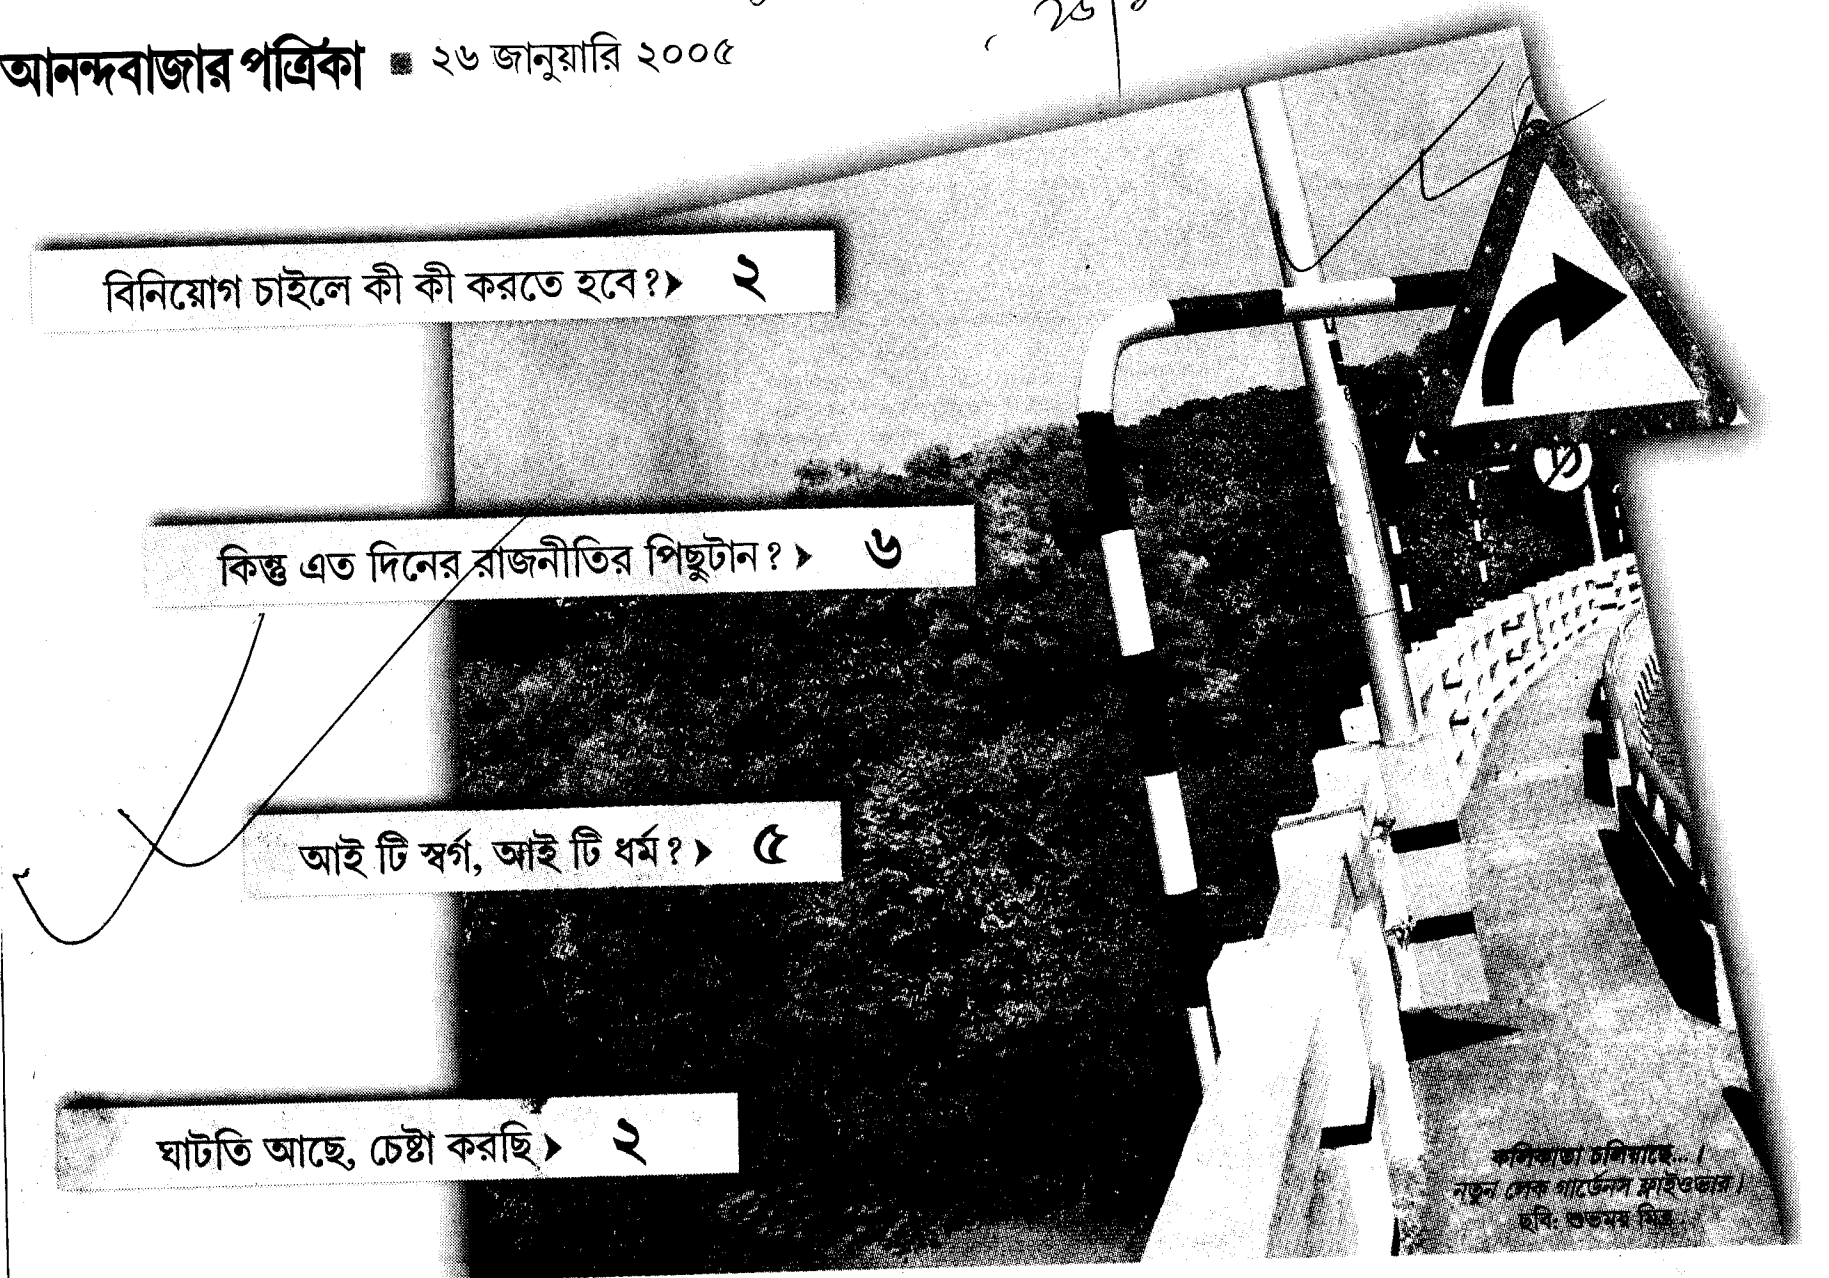 আনন্দবাজার পত্রিকা ■ ২৬ জানুয়ারি ২০০৫
বিনিয়োগ চাইলে কী কী করতে হবে? ২
কিন্তু এত দিনের রাজনীতির পিছুটান? ৬
আই টি স্বর্গ, আই টি ধর্ম? ৫
ঘাটতি আছে, চেষ্টা করছি ২
কলিকাতা চলিয়াছে...।
নতুন লেক গার্ডেনস ফ্লাইওভার।
ছবি: শুভময় মিত্র